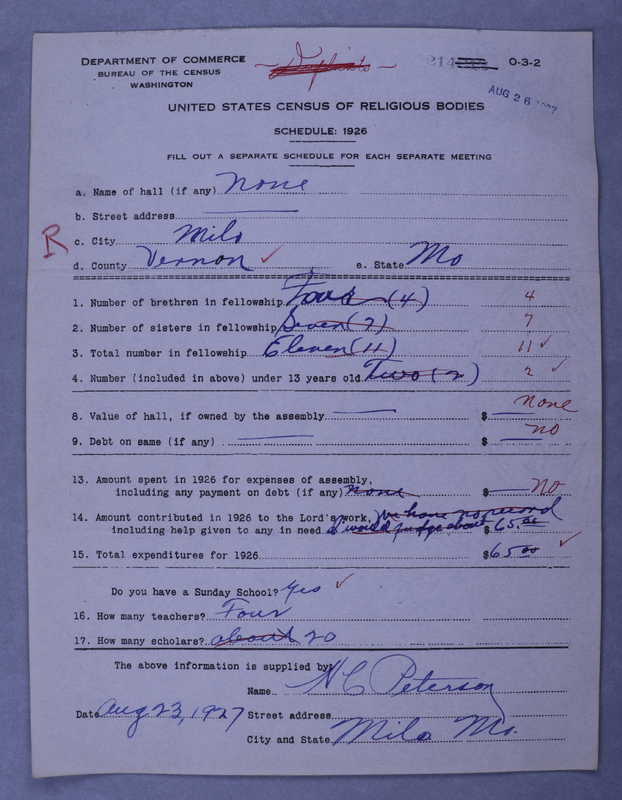 DEPARTMENT OF COMMERCE
BUREAU OF THE CENSUS
WASHINGTON
Duplicate
O-3-2
AUG 26
UNITED STATES CENSUS OF RELIGIOUS BODIES
SCHEDULE: 1926
FILL OUT A SEPARATE SCHEDULE FOR EACH SEPARATE MEETING
a. Name of hall (if any) none
b. Street address
R c. City Milo
d. County Vernon ✓ e. State Mo
1. Number of brethren in fellowship Four (4) 4
2. Number of sisters in fellowship Seven (7) 7
3. Total number in fellowship Eleven (11) 11 ✓
4. Number (included in above) under 13 years old Two (2) 2 ✓
8. Value of hall, if owned by the assembly $ none
9. Debt on same (if any) $ no
13. Amount spent in 1926 for expenses of assembly,
including any payment on debt (if any) none $ no
14. Amount contributed in 1926 to the Lord's work, we have no record
including help given to any in need I would judge about $65.00
15. Total expenditures for 1926 $65.00 ✓
Do you have a Sunday School? Yes ✓
16. How many teachers? Four
17. How many scholars? about 20
The above information is supplied by
Name H C Peterson
Date Aug 23, 1927 Street address
City and State Milo Mo.